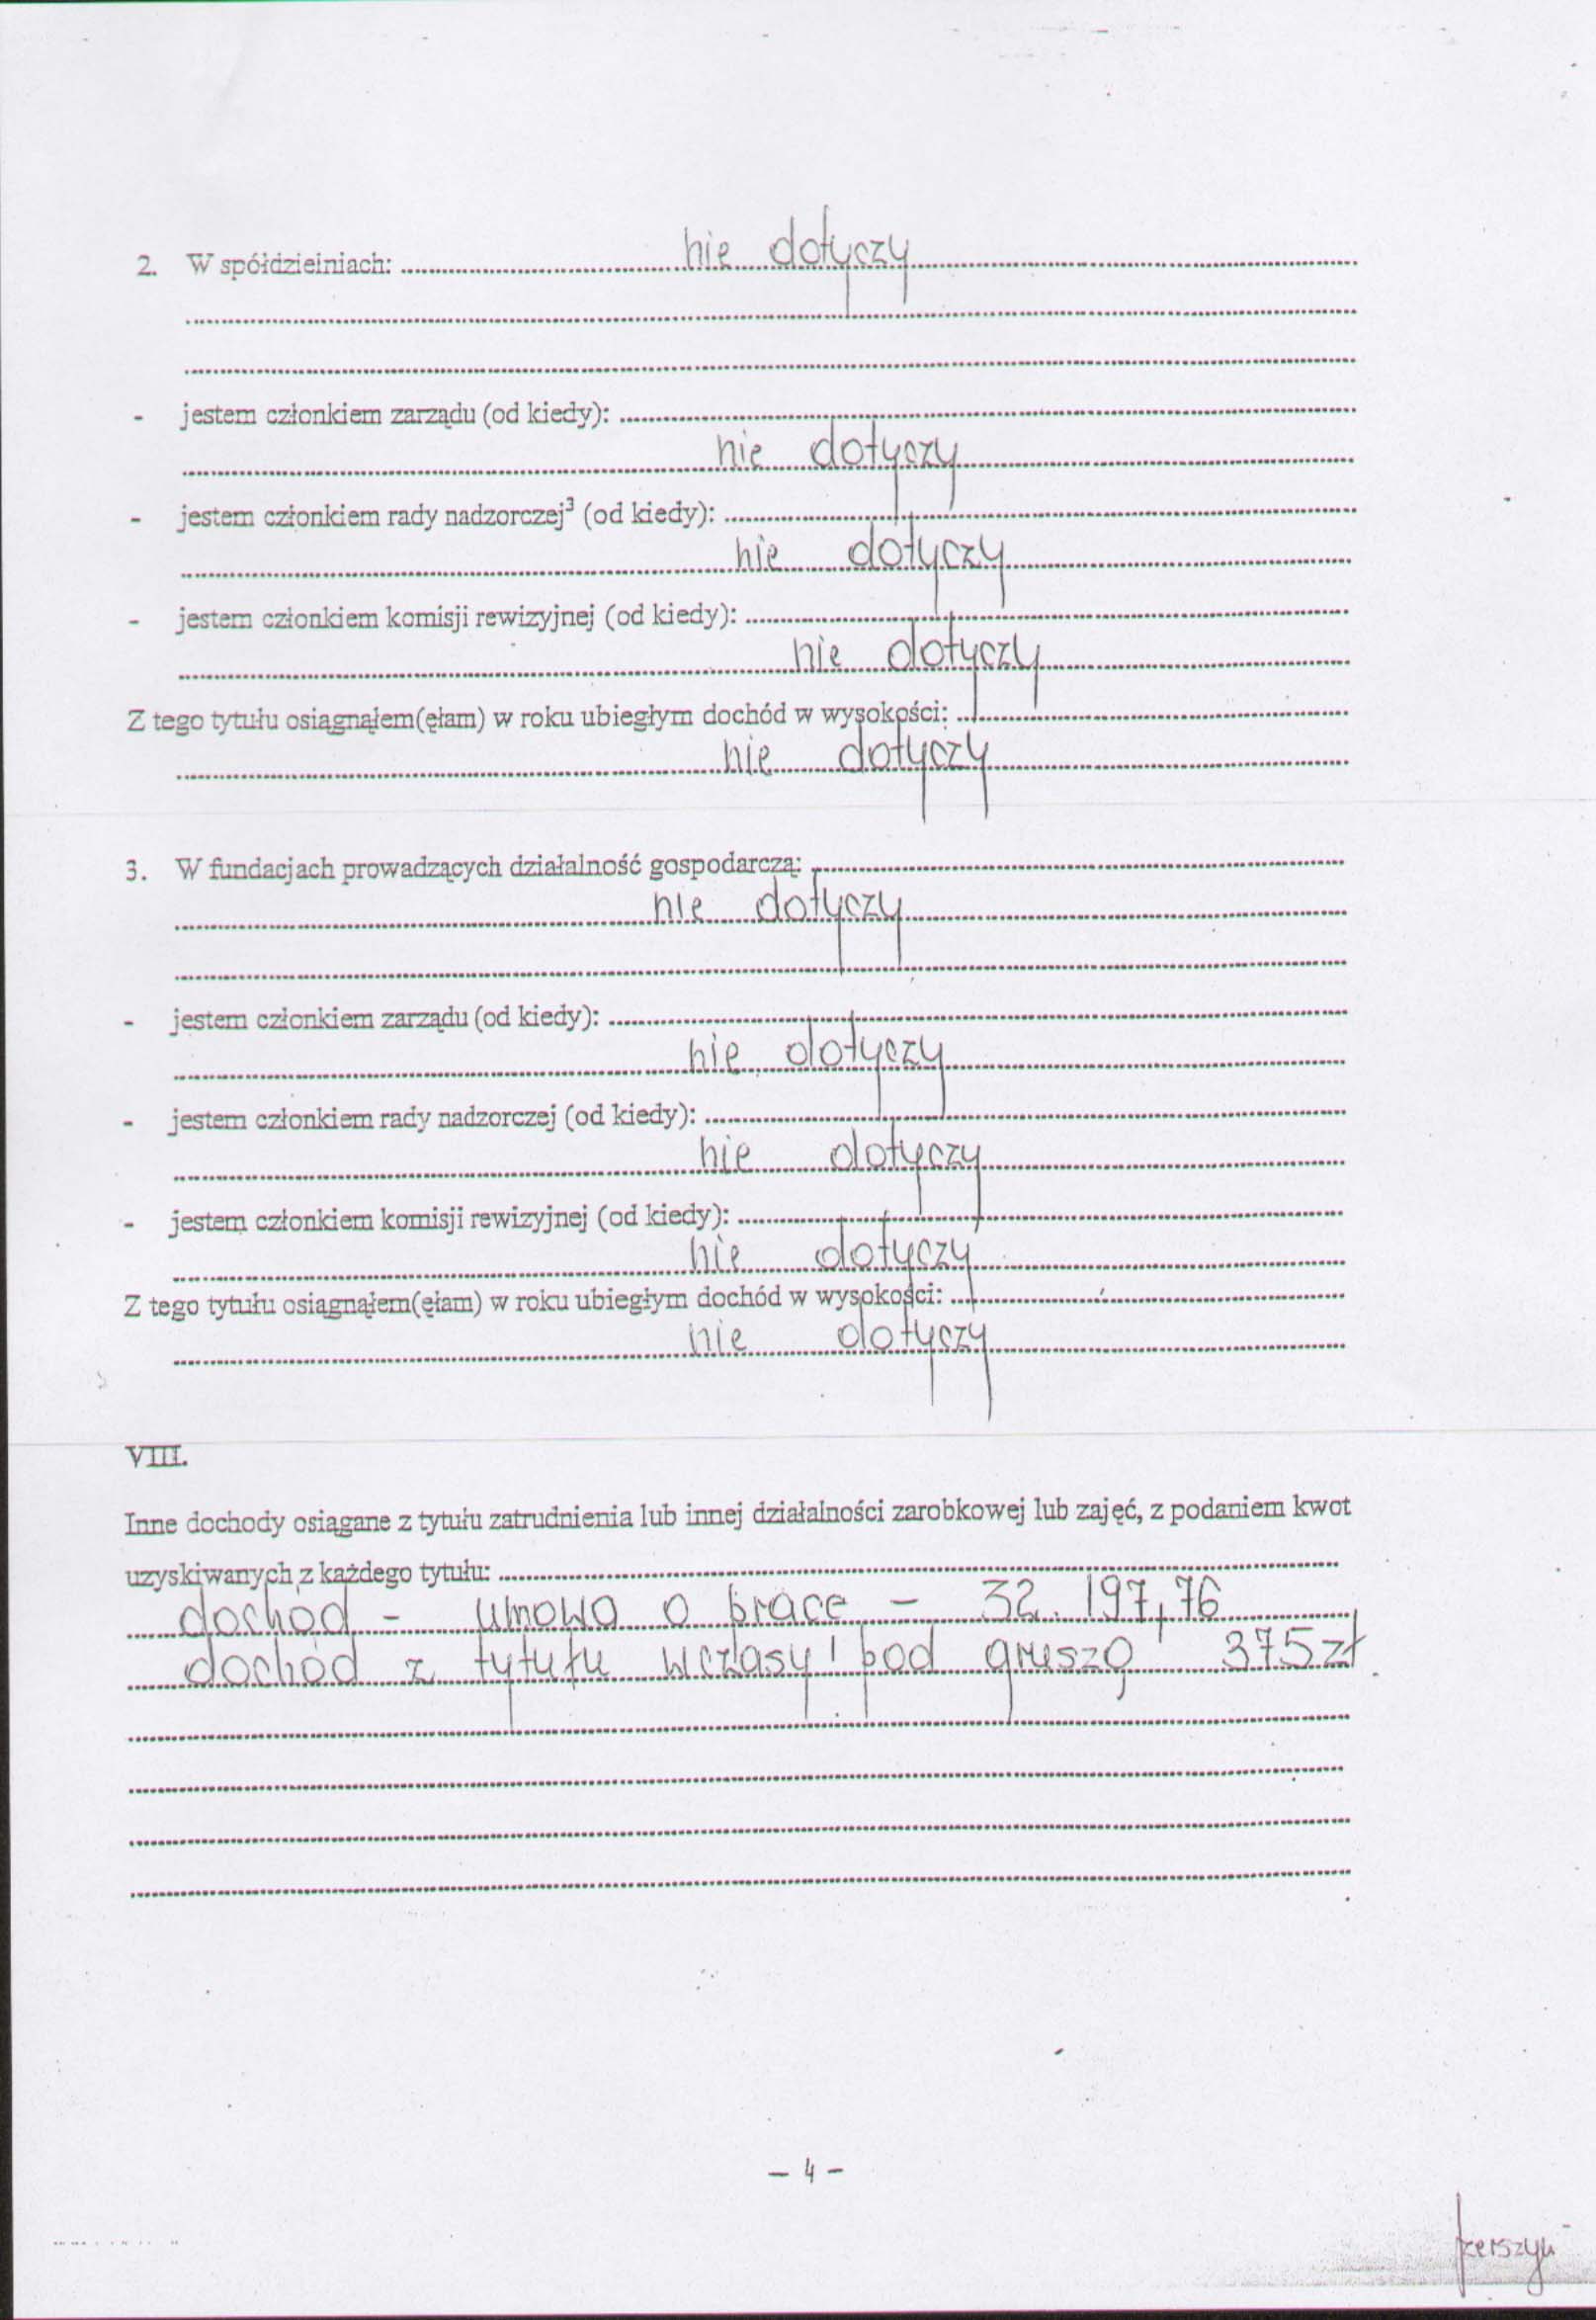 2. W spółdzielniach: nie dotyczy
- jestem członkiem zarządu (od kiedy):
nie dotyczy
- jestem członkiem rady nadzorczej³ (od kiedy):
nie dotyczy
- jestem członkiem komisji rewizyjnej (od kiedy):
nie dotyczy
Z tego tytułu osiągnąłem(ęłam) w roku ubiegłym dochód w wysokości:
nie dotyczy
3. W fundacjach prowadzących działalność gospodarczą:
nie dotyczy
- jestem członkiem zarządu (od kiedy):
nie dotyczy
- jestem członkiem rady nadzorczej (od kiedy):
nie dotyczy
- jestem członkiem komisji rewizyjnej (od kiedy):
nie dotyczy
Z tego tytułu osiągnąłem(ęłam) w roku ubiegłym dochód w wysokości:
nie dotyczy
VIII.
Inne dochody osiągane z tytułu zatrudnienia lub innej działalności zarobkowej lub zajęć, z podaniem kwot
uzyskiwanych z każdego tytułu:
dochód - umowa o pracę - 32.197,76
dochód z tytułu wczasy "pod gruszą" 375 zł
- 4 -